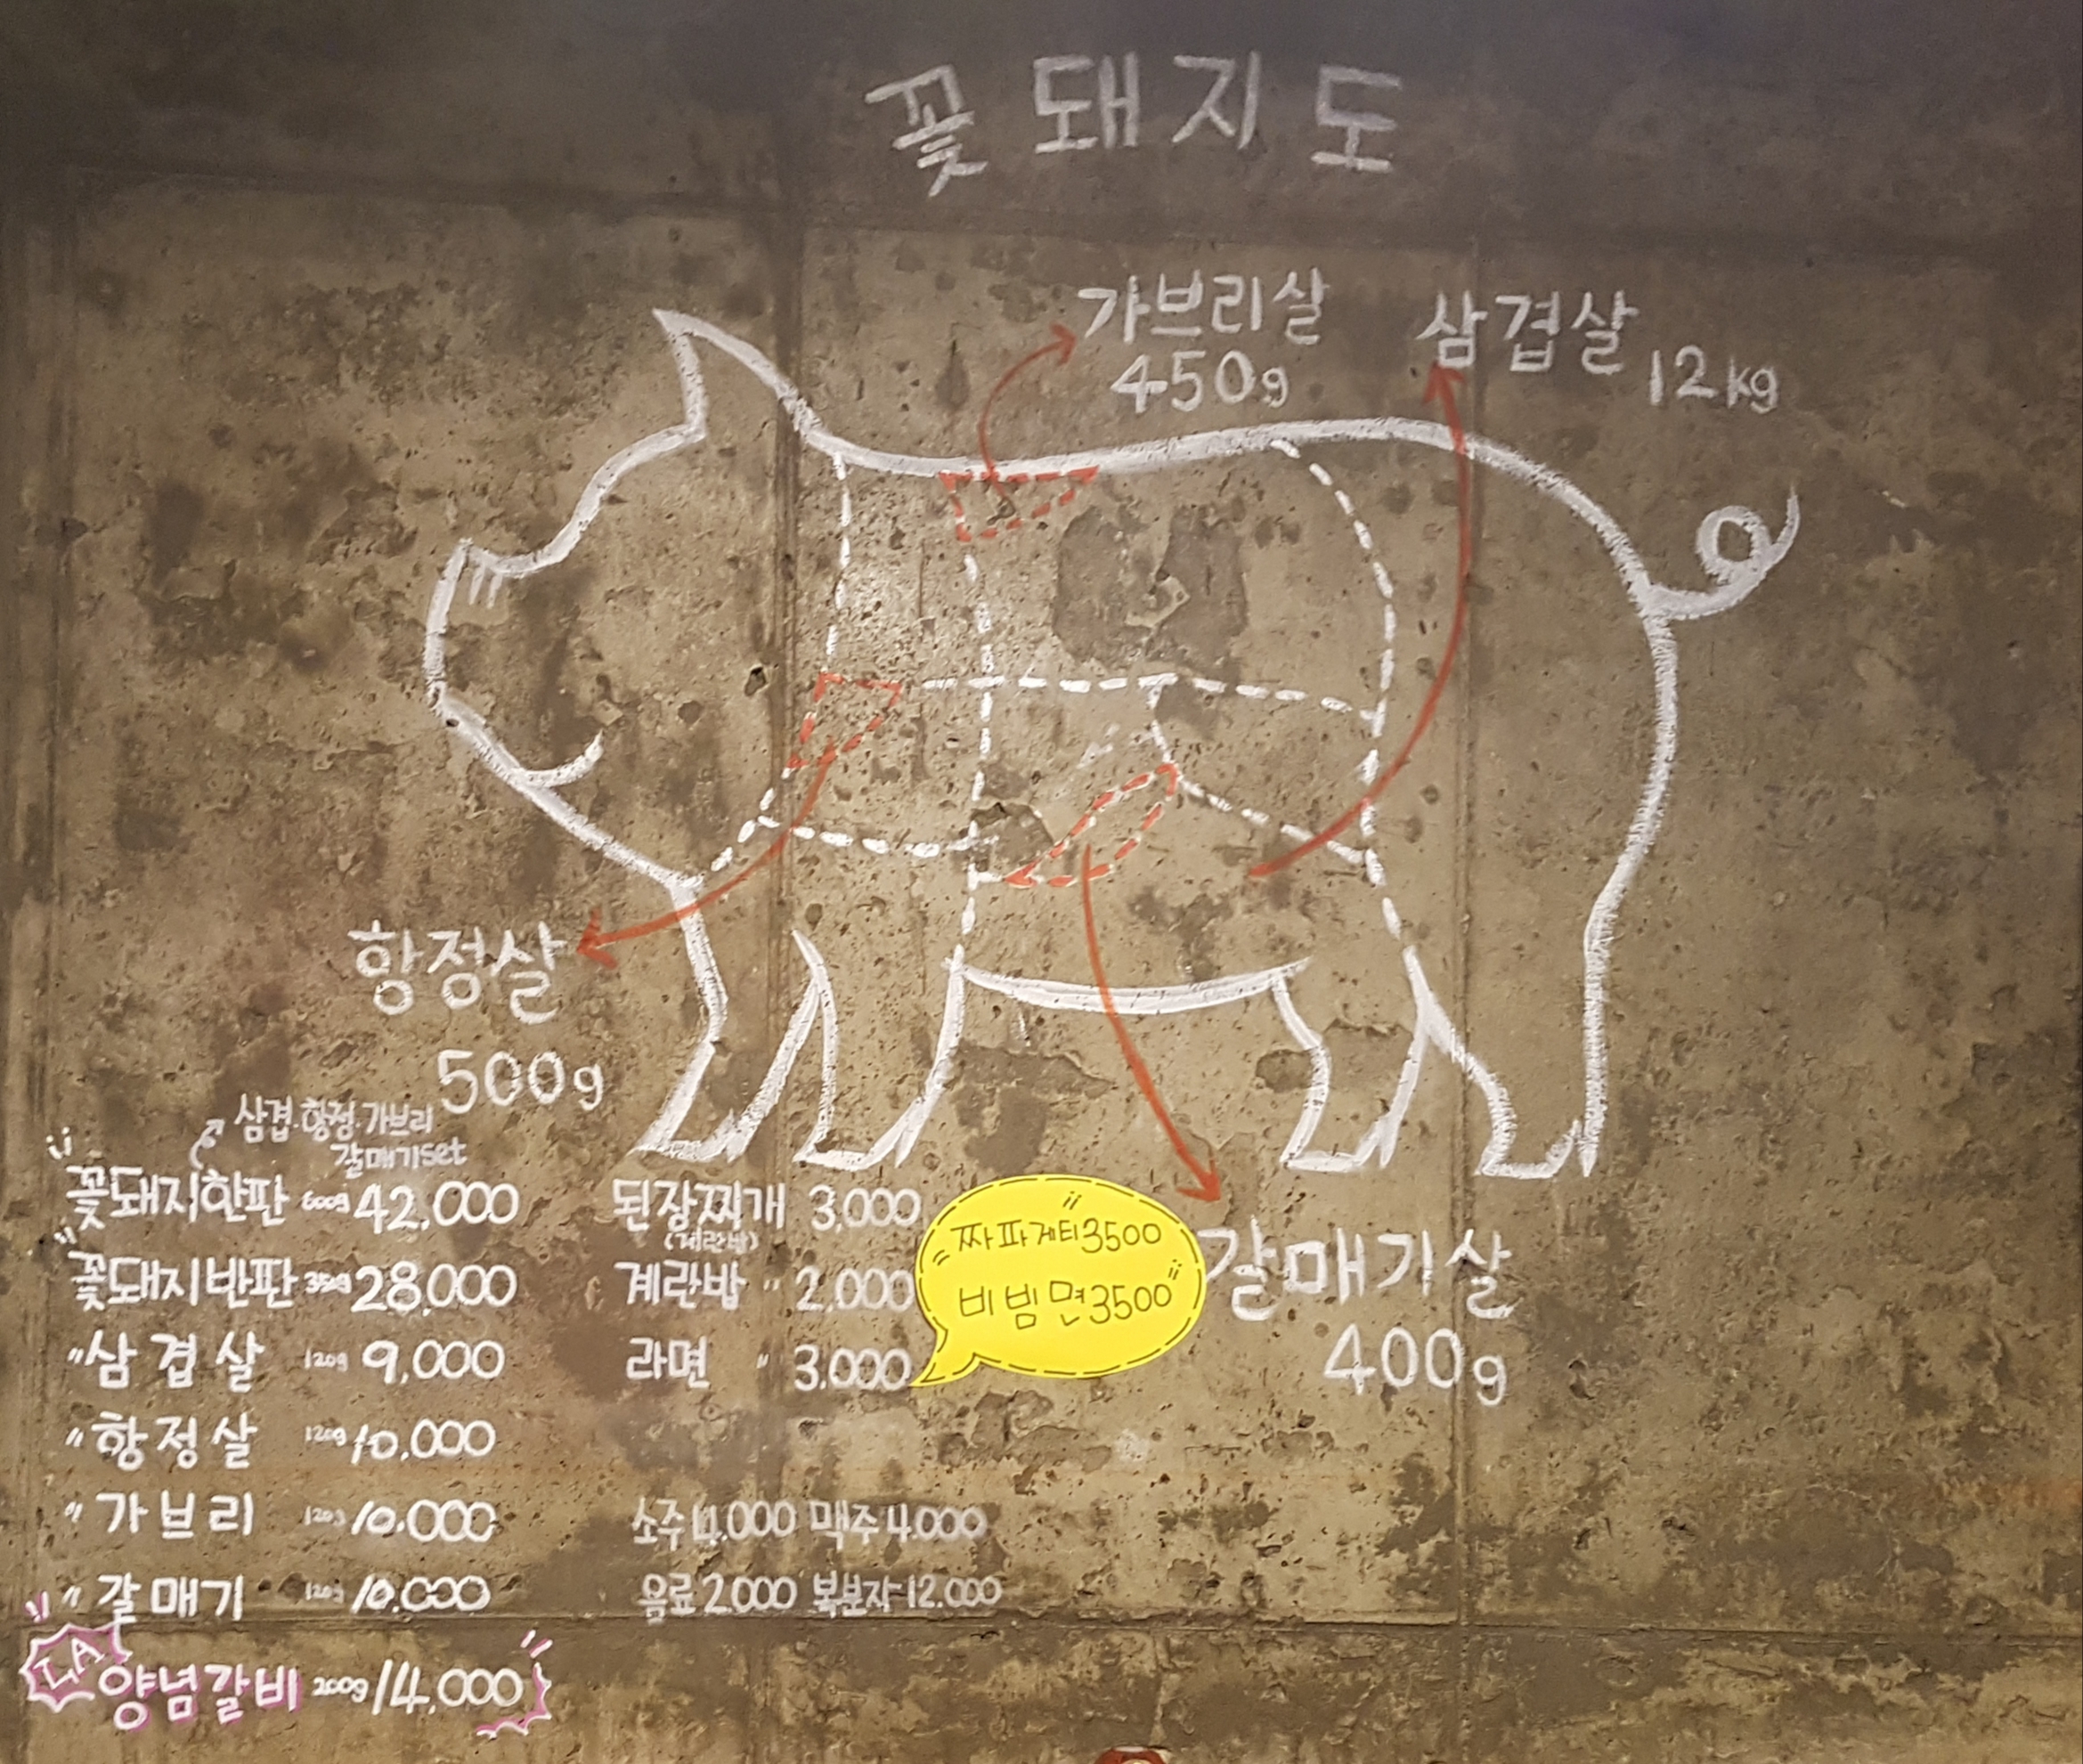 꽃돼지도
가브리살
450g
삼겹살
12kg
항정살
500g
삼겹.항정.가브리
갈매기set
꽃돼지한판 600g 42,000
꽃돼지반판 350g 28,000
〃삼겹살 120g 9,000
〃항정살 120g 10,000
〃가브리 120g 10.000
〃갈매기 120g 10.000
LA 양념갈비 200g 14,000
된장찌개 3,000
(계란밥)
계란밥 〃 2,000
라면 〃 3.000
짜파게티3500
비빔면3500
갈매기살
400g
소주 4.000 맥주 4.000
음료 2.000 복분자 12.000